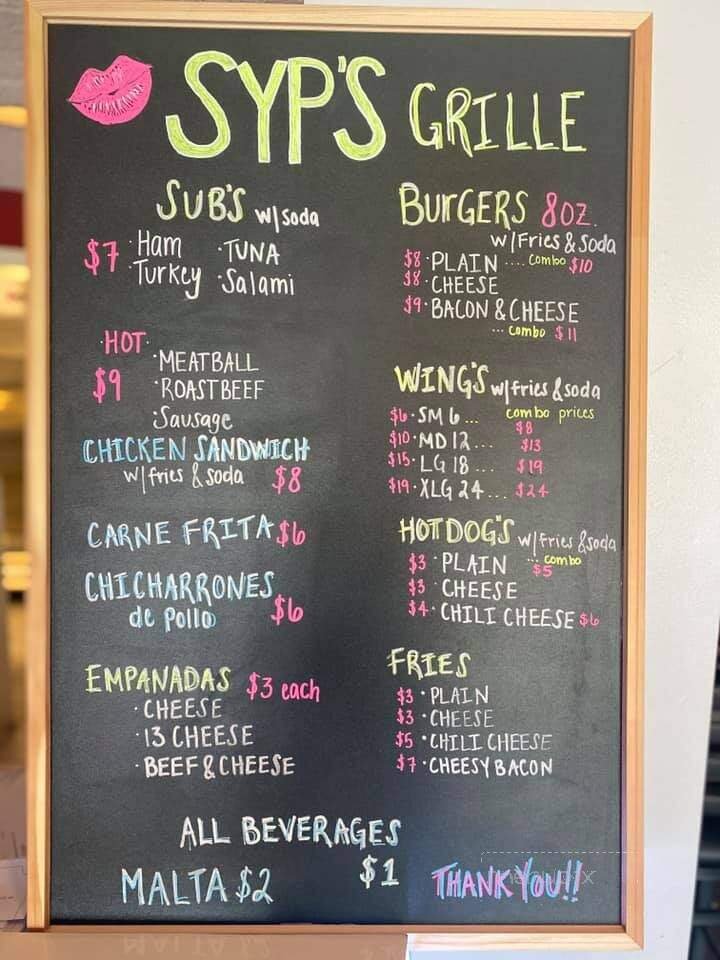 SYP'S GRILLE
SUB'S w/soda
$7 · Ham · TUNA
· Turkey · Salami
· HOT ·
$9 · MEATBALL
· ROAST BEEF
· Sausage
CHICKEN SANDWICH
w/fries & soda $8
CARNE FRITA $6
CHICHARRONES
de Pollo $6
EMPANADAS $3 each
· CHEESE
· 13 CHEESE
· BEEF & CHEESE
BURGERS 8OZ.
w/Fries & Soda
$8 · PLAIN .... Combo $10
$8 · CHEESE
$9 · BACON & CHEESE
... Combo $11
WING'S w/fries & soda
$6 · SM 6 ... combo prices
$8
$10 · MD 12 ... $13
$15 · LG 18 ... $19
$19 · XLG 24 ... $24
HOTDOG'S w/fries & soda
$3 · PLAIN ... combo
$5
$3 · CHEESE
$4 · CHILI CHEESE $6
FRIES
$3 · PLAIN
$3 · CHEESE
$5 · CHILI CHEESE
$7 · CHEESY BACON
ALL BEVERAGES
$1
MALTA $2
THANK YOU!!